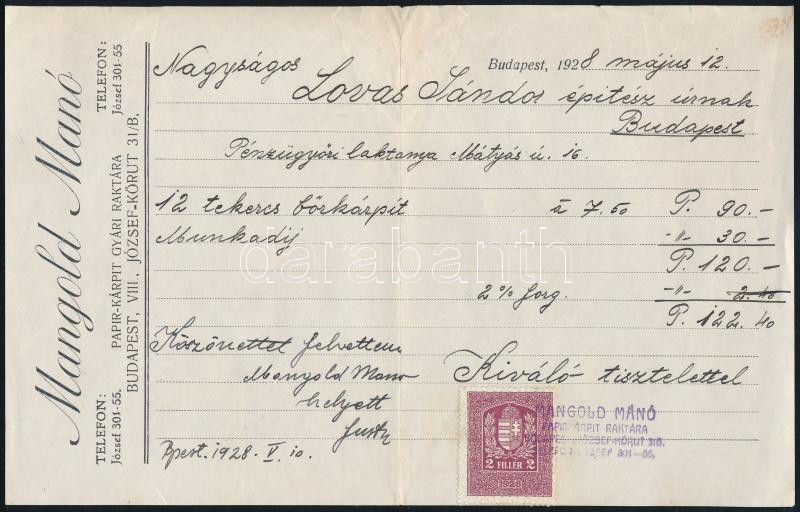 Mangold Manó
TELEFON:
József 301-55.
PAPIR-KÁRPIT GYÁRI RAKTÁRA
BUDAPEST, VIII., JÓZSEF-KÖRUT 31/B.
TELEFON:
József 301-55
Budapest, 1928 május 12.
Nagyságos
Lovas Sándor épitész úrnak
Budapest
Pénzügyőri laktanya Mátyás ú. 16.
12 tekercs bőrkárpit á 7.50 P. 90.-
Munkadij -"- 30.-
P. 120.-
2% forg. -"- 2.40
P. 122.40
Köszönettel felvettem
Mangold Mano
helyett
Kiváló tisztelettel
Bpest. 1928. V. 10.
2 FILLÉR 2
1928
MANGOLD MANÓ
PAPIRKÁRPIT RAKTÁRA
BUDAPEST JÓZSEF-KÖRUT 31/B.
JÓZSEF 301-55.
darabanth